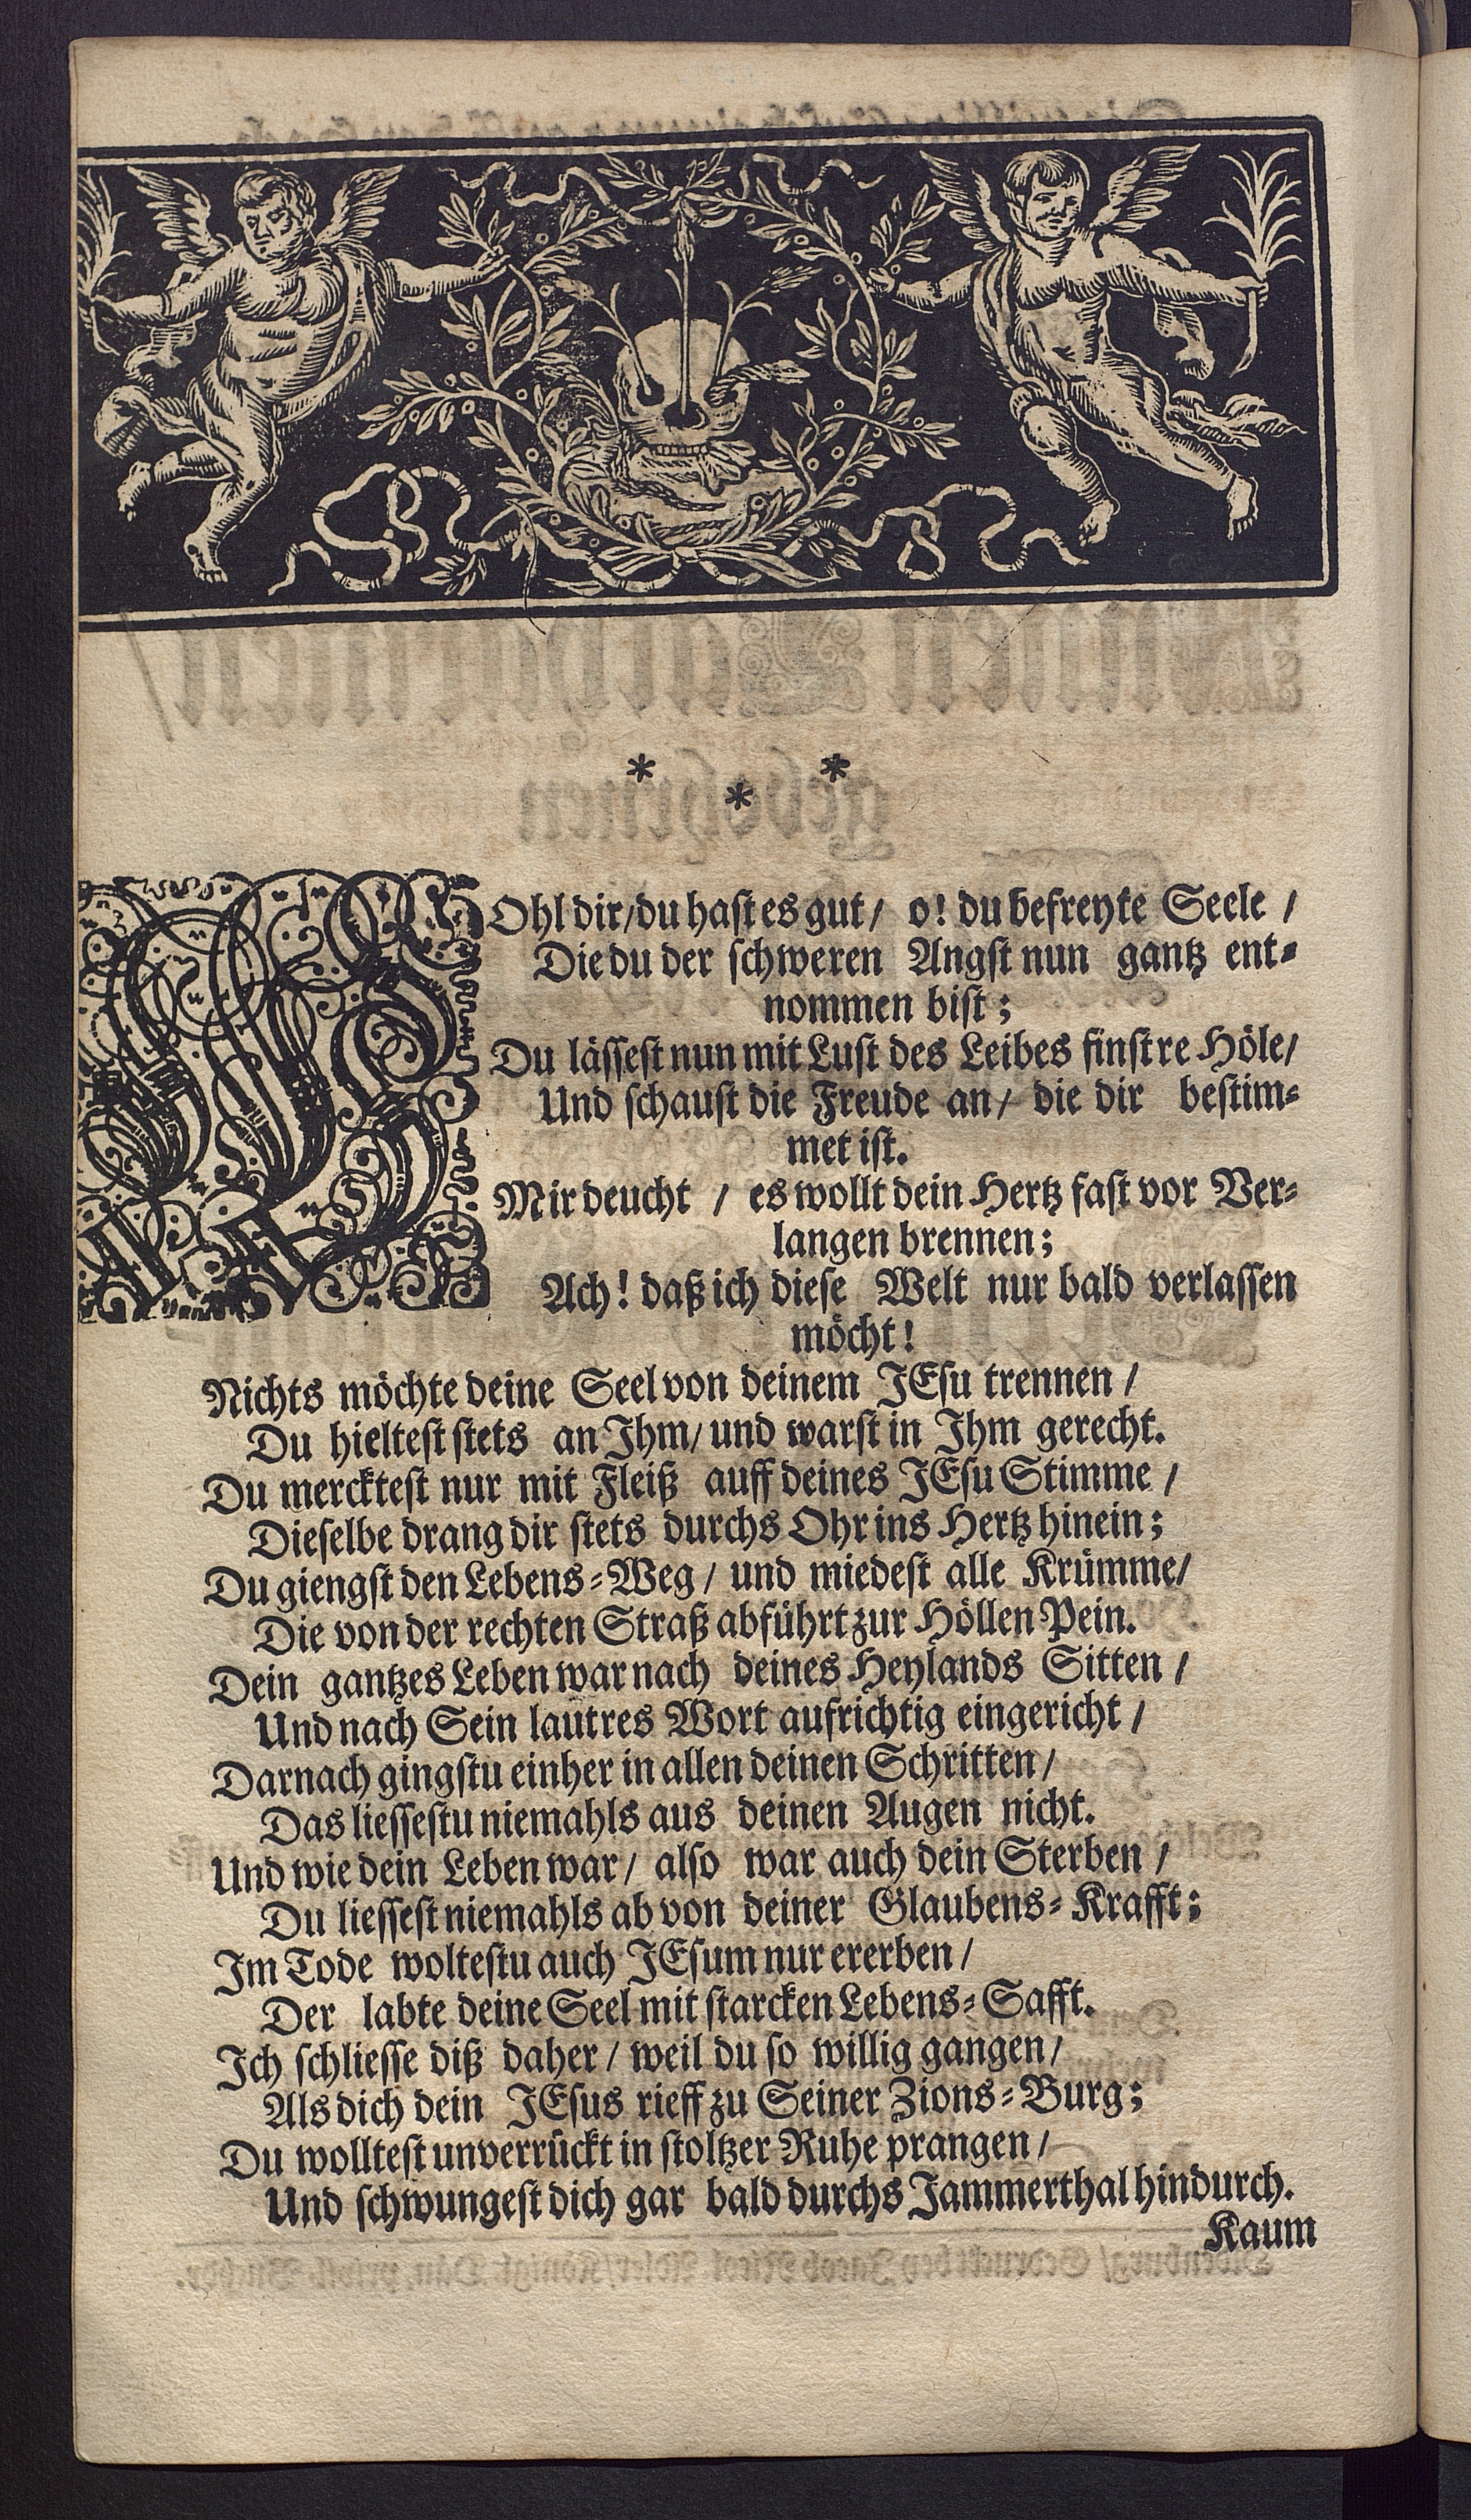 * * *
WOhl dir/du hast es gut/ o! du befreyte Seele /
Die du der schweren Angst nun gantz ent-
nommen bist;
Du lässest nun mit Lust des Leibes finstre Höle/
Und schaust die Freude an/ die dir bestim-
met ist.
Mir deucht / es wollt dein Hertz fast vor Ver-
langen brennen;
Ach! daß ich diese Welt nur bald verlassen
möcht!
Nichts möchte deine Seel von deinem JEsu trennen /
Du hieltest stets an Ihm/ und warst in Ihm gerecht.
Du mercktest nur mit Fleiß auff deines JEsu Stimme /
Dieselbe drang dir stets durchs Ohr ins Hertz hinein;
Du giengst den Lebens-Weg / und miedest alle Krümme/
Die von der rechten Straß abführt zur Höllen Pein.
Dein gantzes Leben war nach deines Heylands Sitten /
Und nach Sein lautres Wort aufrichtig eingericht /
Darnach gingstu einher in allen deinen Schritten /
Das liessestu niemahls aus deinen Augen nicht.
Und wie dein Leben war/ also war auch dein Sterben /
Du liessest niemahls ab von deiner Glaubens-Krafft;
Im Tode woltestu auch JEsum nur ererben /
Der labte deine Seel mit starcken Lebens-Safft.
Ich schliesse diß daher / weil du so willig gangen /
Als dich dein JEsus rieff zu Seiner Zions-Burg;
Du wolltest unverrückt in stoltzer Ruhe prangen /
Und schwungest dich gar bald durchs Jammerthal hindurch.
Kaum